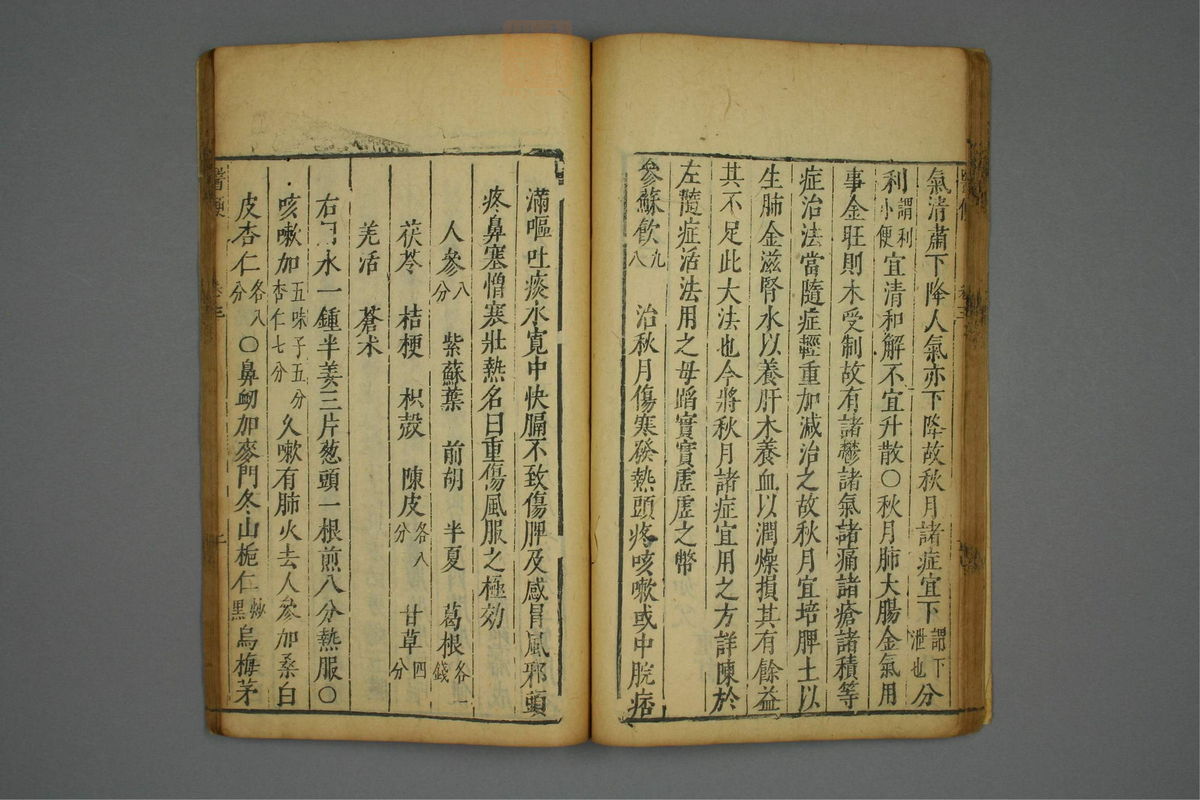 氣清肅下降人氣亦下降故秋月諸症宜下謂下泄也分
利謂利小便宜清和解不宜升散〇秋月肺大腸金氣用
事金旺則木受制故有諸鬱諸氣諸痛諸瘡諸積等
症治法當隨症輕重加減治之故秋月宜培脾土以
生肺金滋腎水以養肝木養血以潤燥損其有餘益
其不足此大法也今將秋月諸症宜用之方詳陳於
左隨症活法用之毋蹈實實虛虛之幣
參蘇飲九八 治秋月傷寒發熱頭疼咳嗽或中脘痞
滿嘔吐痰水寬中快膈不致傷脾及感冒風邪頭
疼鼻塞憎寒壯熱名曰重傷風服之極効
人參八分 紫蘇葉 前胡 半夏 葛根各一錢
茯苓 桔梗 枳殼 陳皮各八分 甘草四分
羌活 蒼朮
右用水一鍾半姜三片葱頭一根煎八分熱服〇
咳嗽加五味子五分杏仁七分久嗽有肺火去人參加桑白
皮杏仁各八分〇鼻衂加麥門冬山梔仁炒黑烏梅茅
醫便 卷三